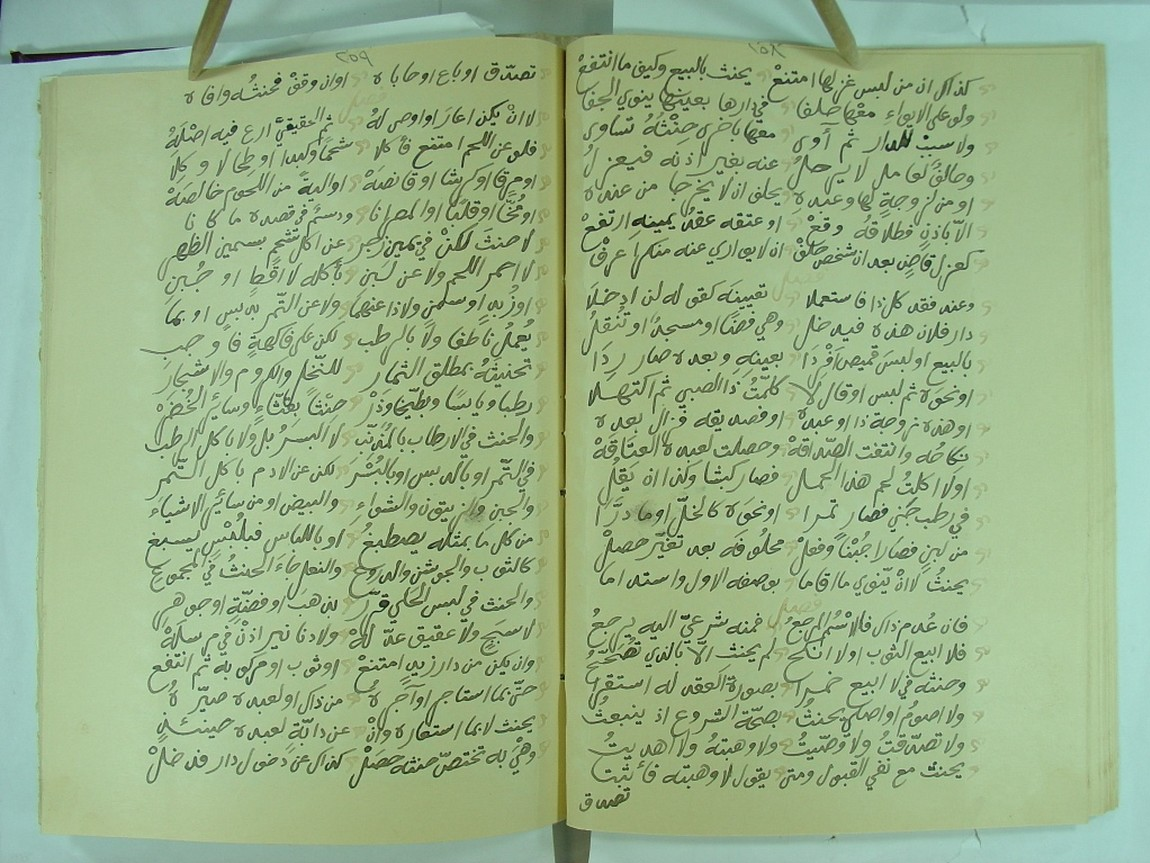 ٢٥٨
كذاك ان من لبس غزلها امتنع يحنث بالبيع وكيف ما انتفع
ولو على الايواء معها حلفا في دارها بعينها ينوي الجفا
ولا سبب للدار ثم آوى معها باخرى حنثه تساوى
وحالف لعامل لا يرحل عنه بغير اذنه فيعزل
او من لزوجة لها وعبده يحلف ان لا يخرجا من عنده
الا باذن فطلاقه وقع او عتقه عقد يمينه ارتفع
كعزل قاض بعد ان شخص حلف ان لا يواري عنه منكرا عرف
فصل
وعند فقد كل ذا فاستعملا تعيينه كقوله لن ادخلا
دار فلان هذه فيدخل وهي فضا او مسجدا او تنقل
بالبيع او لبس قميص افردا بعينه وبعده صار ردا
او نحوه ثم لبس او قال لا كلمت ذا الصبي ثم اكتهلا
او هذه زوجة ذا او عبده او صديقه فزال بعده
نكاحه وانتفت الصداقة وحصلت لعبده العتاقة
او لا اكلت لحم هذا الحمل فصار كبشا وكذا ان يقل
في رطب جني فصار تمرا او نحوه كالخل او ما درا
من لبن فصار جبنا وفعل محلوفه بعد تغير حصل
يحنث لا ان ينوي ما اقاما بوصفه الاول واستداما
فصل
فان عدم ذاك فلاسم المرجع فمنه شرعي اليه يرجع
فلا ابيع الثوب او لا انكح لم يحنث الا بالذي تصححه
وحنثه في لا ابيع خمرا بصورة العقد له استقرا
ولا اصوم او اصلي يحنث بصحة الشروع اذ ينبعث
ولا تصدقت ولا وصيت ولا وهبته ولا اهديت
يحنث مع نفي القبول ومتى يقول لا وهبته فاثبتا
تصدق
٢٥٩
تصدق او باع او حاباه او ان وقف فحنثه وافاه
لا ان يكن اعار او اوصى له فصل ثم الحقيقي ارع فيه اصله
فلو عن اللحم امتنع فاكلا شحما وكبدا او طحالا وكلا
او مرقا او كرشا او قانصة او الية من اللحوم خالصة
او مخا او قلبا او المصرانا ودسم في قصده ما كانا
لا حنث لكن في يمين زجر عن اكل شحم بسمين الظهر
لا احمر اللحم ولا عن لبن بأكله لاقط او جبن
او زبد او سمن ولا ذا عنهما ولا عن التمر بدبس او بما
يعمل ناطفا ولا بالرطب لكن على فاكهة فاوجب
تحنيثه بمطلق الثمار للنخل والكروم والاشجار
رطبا ويابسا وبطيخا وذر حنثا بقثاء وسائر الخضر
والحنث في الارطاب بالمذنب لا البسر بل ولا باكل الرطب
في التمر او بالدبس او بالبسر لكن عن الادم باكل التمر
والجبن والزيتون والشواء والبيض او من سائر الاشياء
من كل ما بمثله يصطبغ او باللباس فبلبس يسبغ
كالثوب والجوشن والدروع والنعل جاء الحنث في المجموع
والحنث في لبس الحلي قرر لذهب او فضة او جوهر
لا سبج ولا عقيق عد له ولا دنانير اذن في مرسله
وان يكن من دار زيد امتنع او ثوب او مركوبه ثم انتفع
حتى بما استاجر او آجره من ذاك او لعبده صيره
يحنث لا بما استعاره وان عن دابة لعبده حينئذ
وهي به تختص حنثه حصل كذاك عن دخول دار قد خل